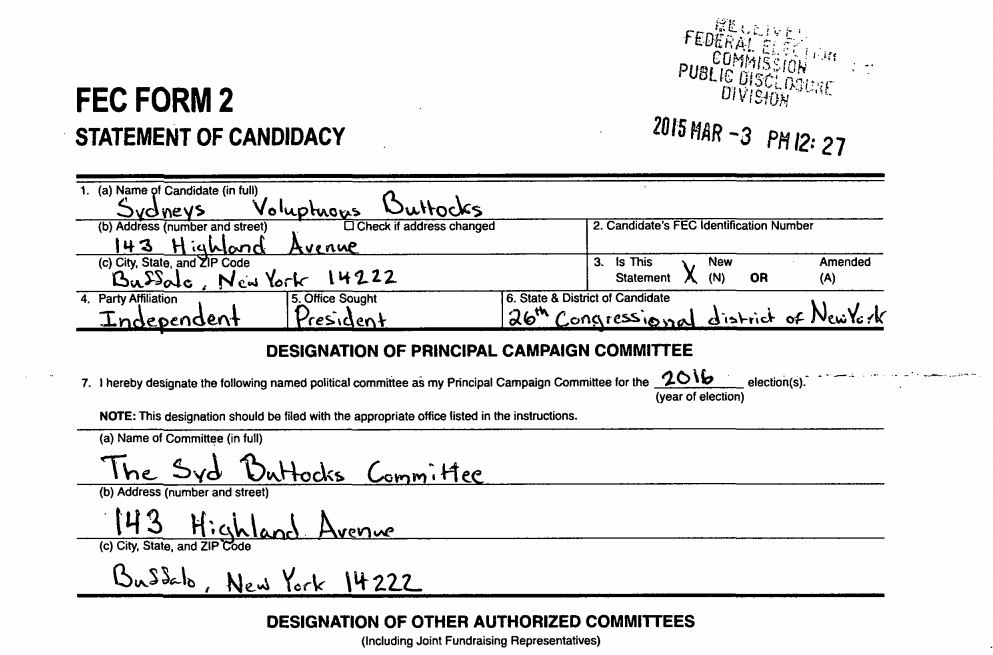 RECEIVED
FEDERAL ELECTION
COMMISSION
PUBLIC DISCLOSURE
DIVISION
2015 MAR -3 PM 12: 27
FEC FORM 2
STATEMENT OF CANDIDACY
1. (a) Name of Candidate (in full)
Sydneys Voluptuous Buttocks
(b) Address (number and street) ☐ Check if address changed
143 Highland Avenue
2. Candidate's FEC Identification Number
(c) City, State, and ZIP Code
Buffalo, New York 14222
3. Is This Statement X New (N) OR Amended (A)
4. Party Affiliation
Independent
5. Office Sought
President
6. State & District of Candidate
26th Congressional district of New York
DESIGNATION OF PRINCIPAL CAMPAIGN COMMITTEE
7. I hereby designate the following named political committee as my Principal Campaign Committee for the 2016 election(s).
(year of election)
NOTE: This designation should be filed with the appropriate office listed in the instructions.
(a) Name of Committee (in full)
The Syd Buttocks Committee
(b) Address (number and street)
143 Highland Avenue
(c) City, State, and ZIP Code
Buffalo, New York 14222
DESIGNATION OF OTHER AUTHORIZED COMMITTEES
(Including Joint Fundraising Representatives)